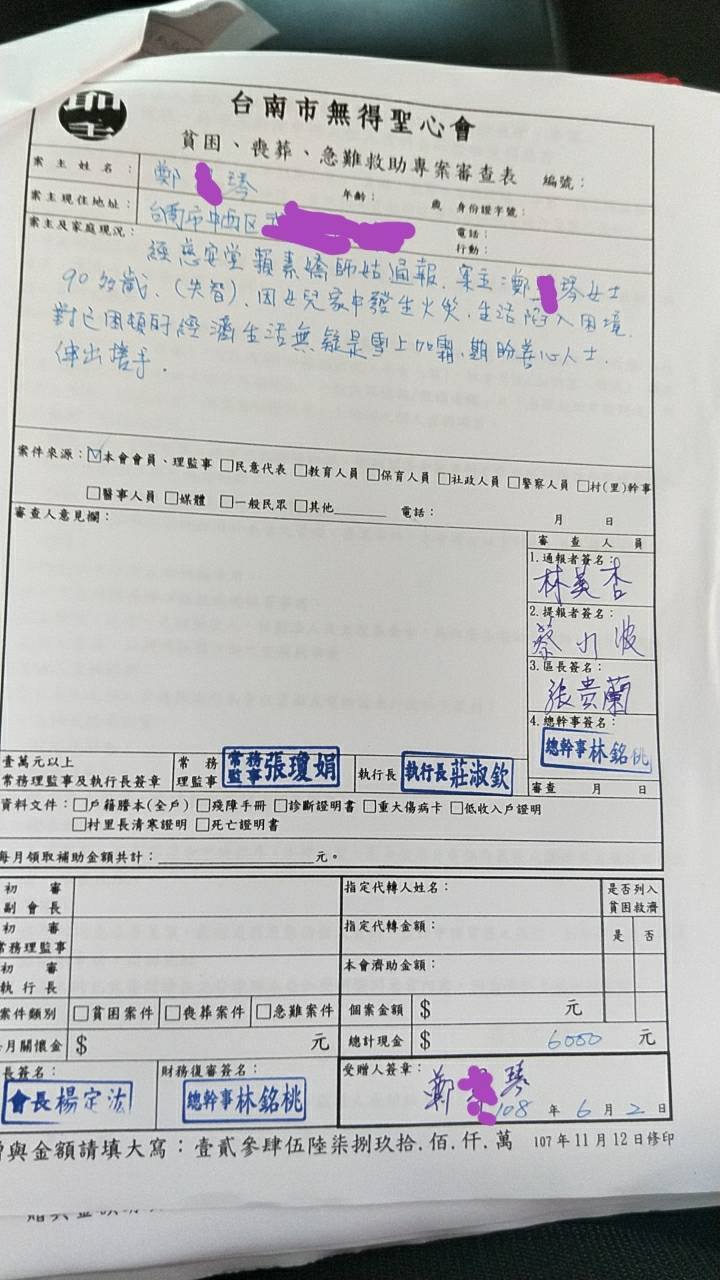 台南市無得聖心會
貧困、喪葬、急難救助專案審查表 編號：
案主姓名： 鄭 琴 年齡： 歲 身份證字號：
案主現住地址： 台南市中西区 電話：
行動：
案主及家庭現況：
經慈安堂賴素嬌師姑通報，案主：鄭 琴女士
90多歲，(失智)，因女兒家中發生火災，生活陷入困境，
對已困頓的經濟生活無疑是雪上加霜，期盼善心人士，
伸出援手。
案件來源：☑本會會員、理監事 □民意代表 □教育人員 □保育人員 □社政人員 □警察人員 □村(里)幹事
□醫事人員 □媒體 □一般民眾 □其他 電話： 月 日
審查人意見欄：
審查人員
1.通報者簽名：
林美杏
2.提報者簽名：
蔡 波
3.區長簽名：
張貴蘭
4.總幹事簽名：
總幹事林銘桃
審查 月 日
壹萬元以上
常務理監事及執行長簽章
常務理監事 常務監事張瓊娟 執行長 執行長莊淑欽
資料文件：□戶籍謄本(全戶) □殘障手冊 □診斷證明書 □重大傷病卡 □低收入戶證明
□村里長清寒證明 □死亡證明書
每月領取補助金額共計： 元。
初審
副會長
初審
常務理監事
初審
執行長
指定代轉人姓名：
指定代轉金額：
本會濟助金額：
是否列入
貧困救濟
是 否
案件類別 □貧困案件 □喪葬案件 □急難案件 個案金額 $ 元
月關懷金 $ 元 總計現金 $ 6000 元
長簽名：
會長楊定浤
財務復審簽名：
總幹事林銘桃
受贈人簽章：
鄭 琴
108 年 6 月 2 日
與金額請填大寫：壹貳參肆伍陸柒捌玖拾.佰.仟.萬 107年11月12日修印